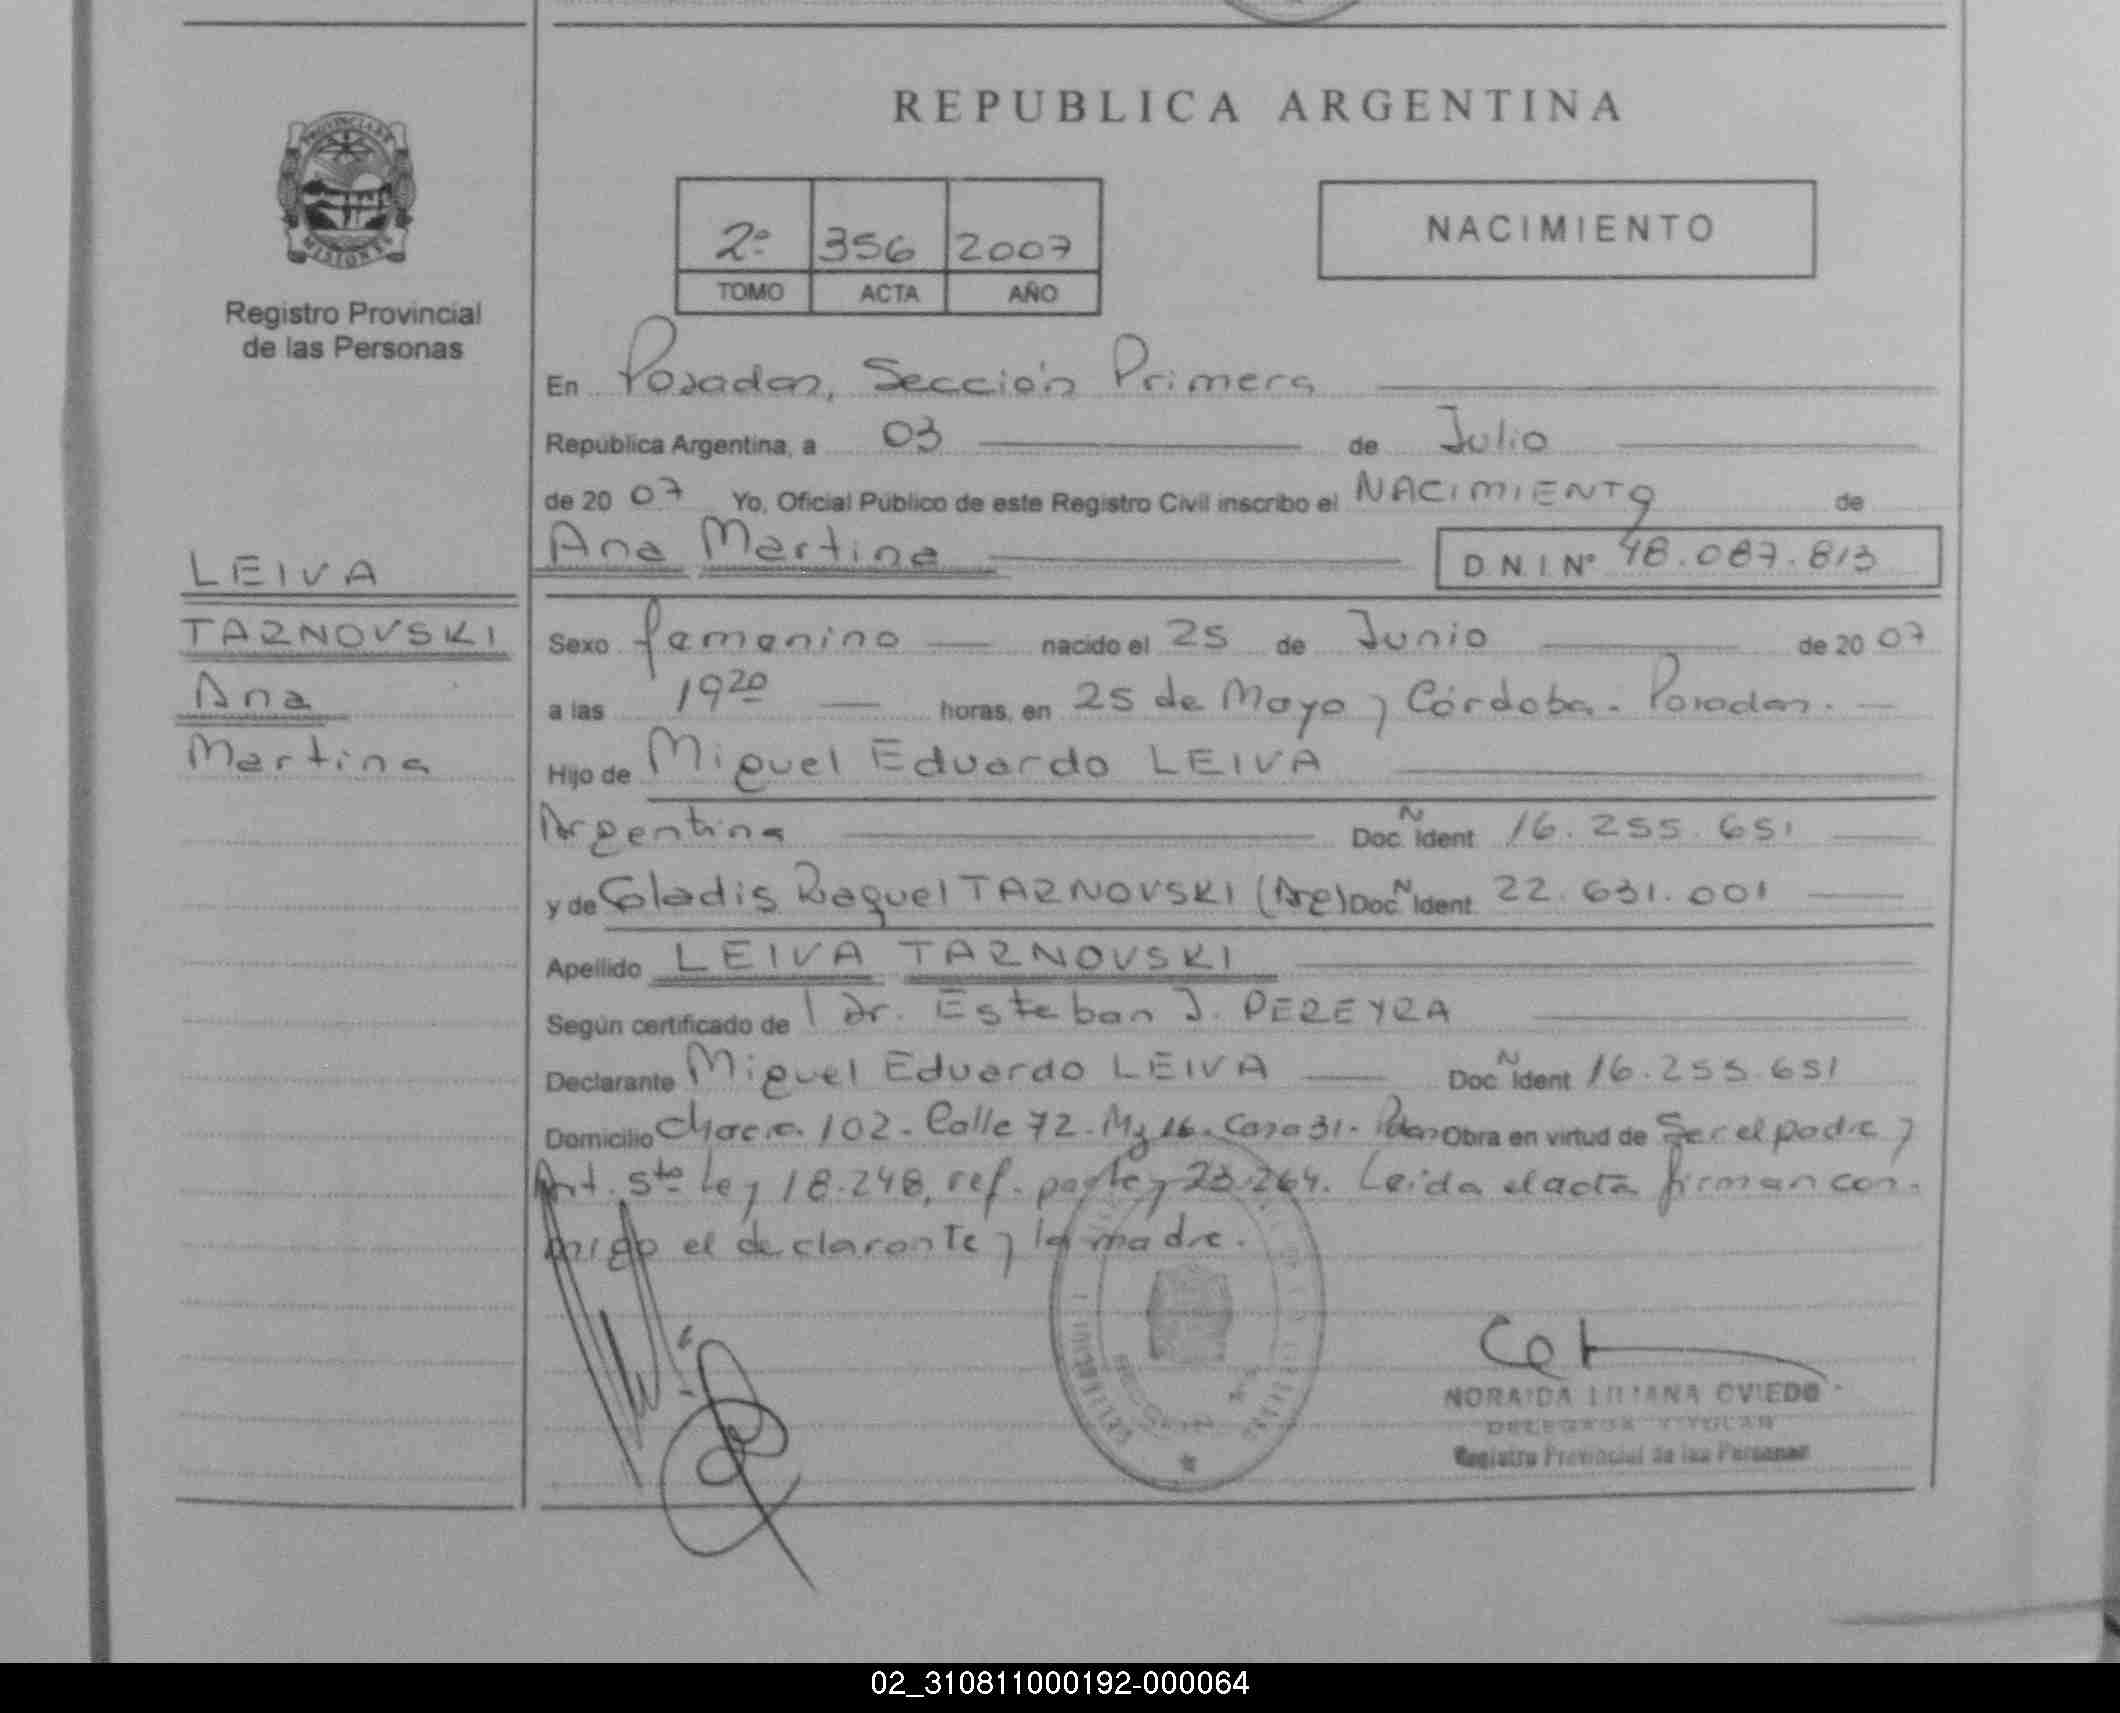 REPUBLICA ARGENTINA
PROVINCIA DE
MISIONES
Registro Provincial
de las Personas
2º 356 2007
TOMO ACTA AÑO
NACIMIENTO
En Posadas, Sección Primera
República Argentina, a 03 de Julio
de 20 07 Yo, Oficial Público de este Registro Civil inscribo el NACIMIENTO de
Ana Martina D.N.I Nº 48.087.813
LEIVA
TARNOVSKI
Ana
Martina
Sexo femenino nacido el 25 de Junio de 20 07
a las 19 20 horas, en 25 de Mayo y Córdoba. Posadas.
Hijo de Miguel Eduardo LEIVA
Argentina Doc. Ñ Ident 16.255.651
y de Gladis Raquel TARNOVSKI (Arg) Doc. Ñ Ident. 22.631.001
Apellido LEIVA TARNOVSKI
Según certificado de Dr. Esteban J. PEREYRA
Declarante Miguel Eduardo LEIVA Doc. Ñ Ident 16.255.651
Domicilio Chacra 102 - Calle 72 - Mz 16 - Casa 31 - Obra en virtud de Ser el padre y
Art. 5to Ley 18.248, ref. por ley 23.264. Leida el acta firman con-
migo el declarante y la madre.
NORAIDA LILIANA OVIEDO
DELEGADA TITULAR
Registro Provincial de las Personas
02_310811000192-000064